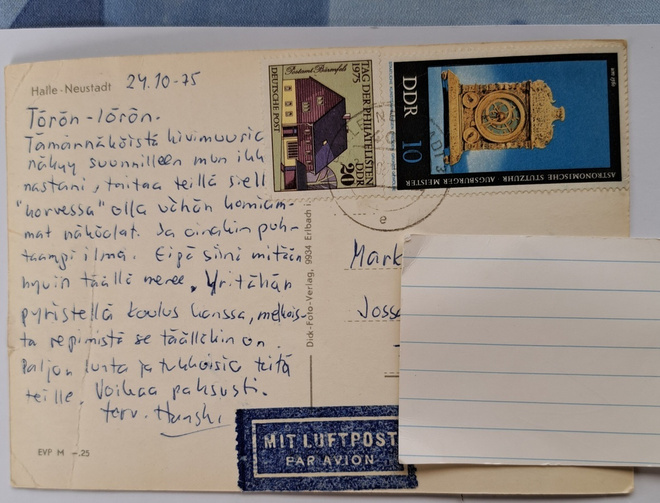 Halle-Neustadt 24.10-75
Törön-törön.
Tämännäköistä kivimuuria
näkyy suunnilleen mun ikk
nastani, taitaa teillä siell
"korvessa" olla vähän komiam-
mat näköalat. Ja ainakin puh-
taampi ilma. Eipä siinä mitään
hyvin täällä menee. Yritähän
pyristellä koulus kanssa, melkois-
ta repimistä se täälläkin on.
Paljon lunta ja tukkoisia teitä
teille. Voikaa paksusti.
terv.
EVP M -.25
Dick-Foto-Verlag, 9934 Erlbach i
Postamt Bärenfels
TAG DER PHILATELISTEN
1975
DEUTSCHE POST
DDR
20
DDR 10
ASTRONOMISCHE STUTZUHR · AUGSBURGER MEISTER
um 1560
e
Mark
Joss
MIT LUFTPOST
PAR AVION